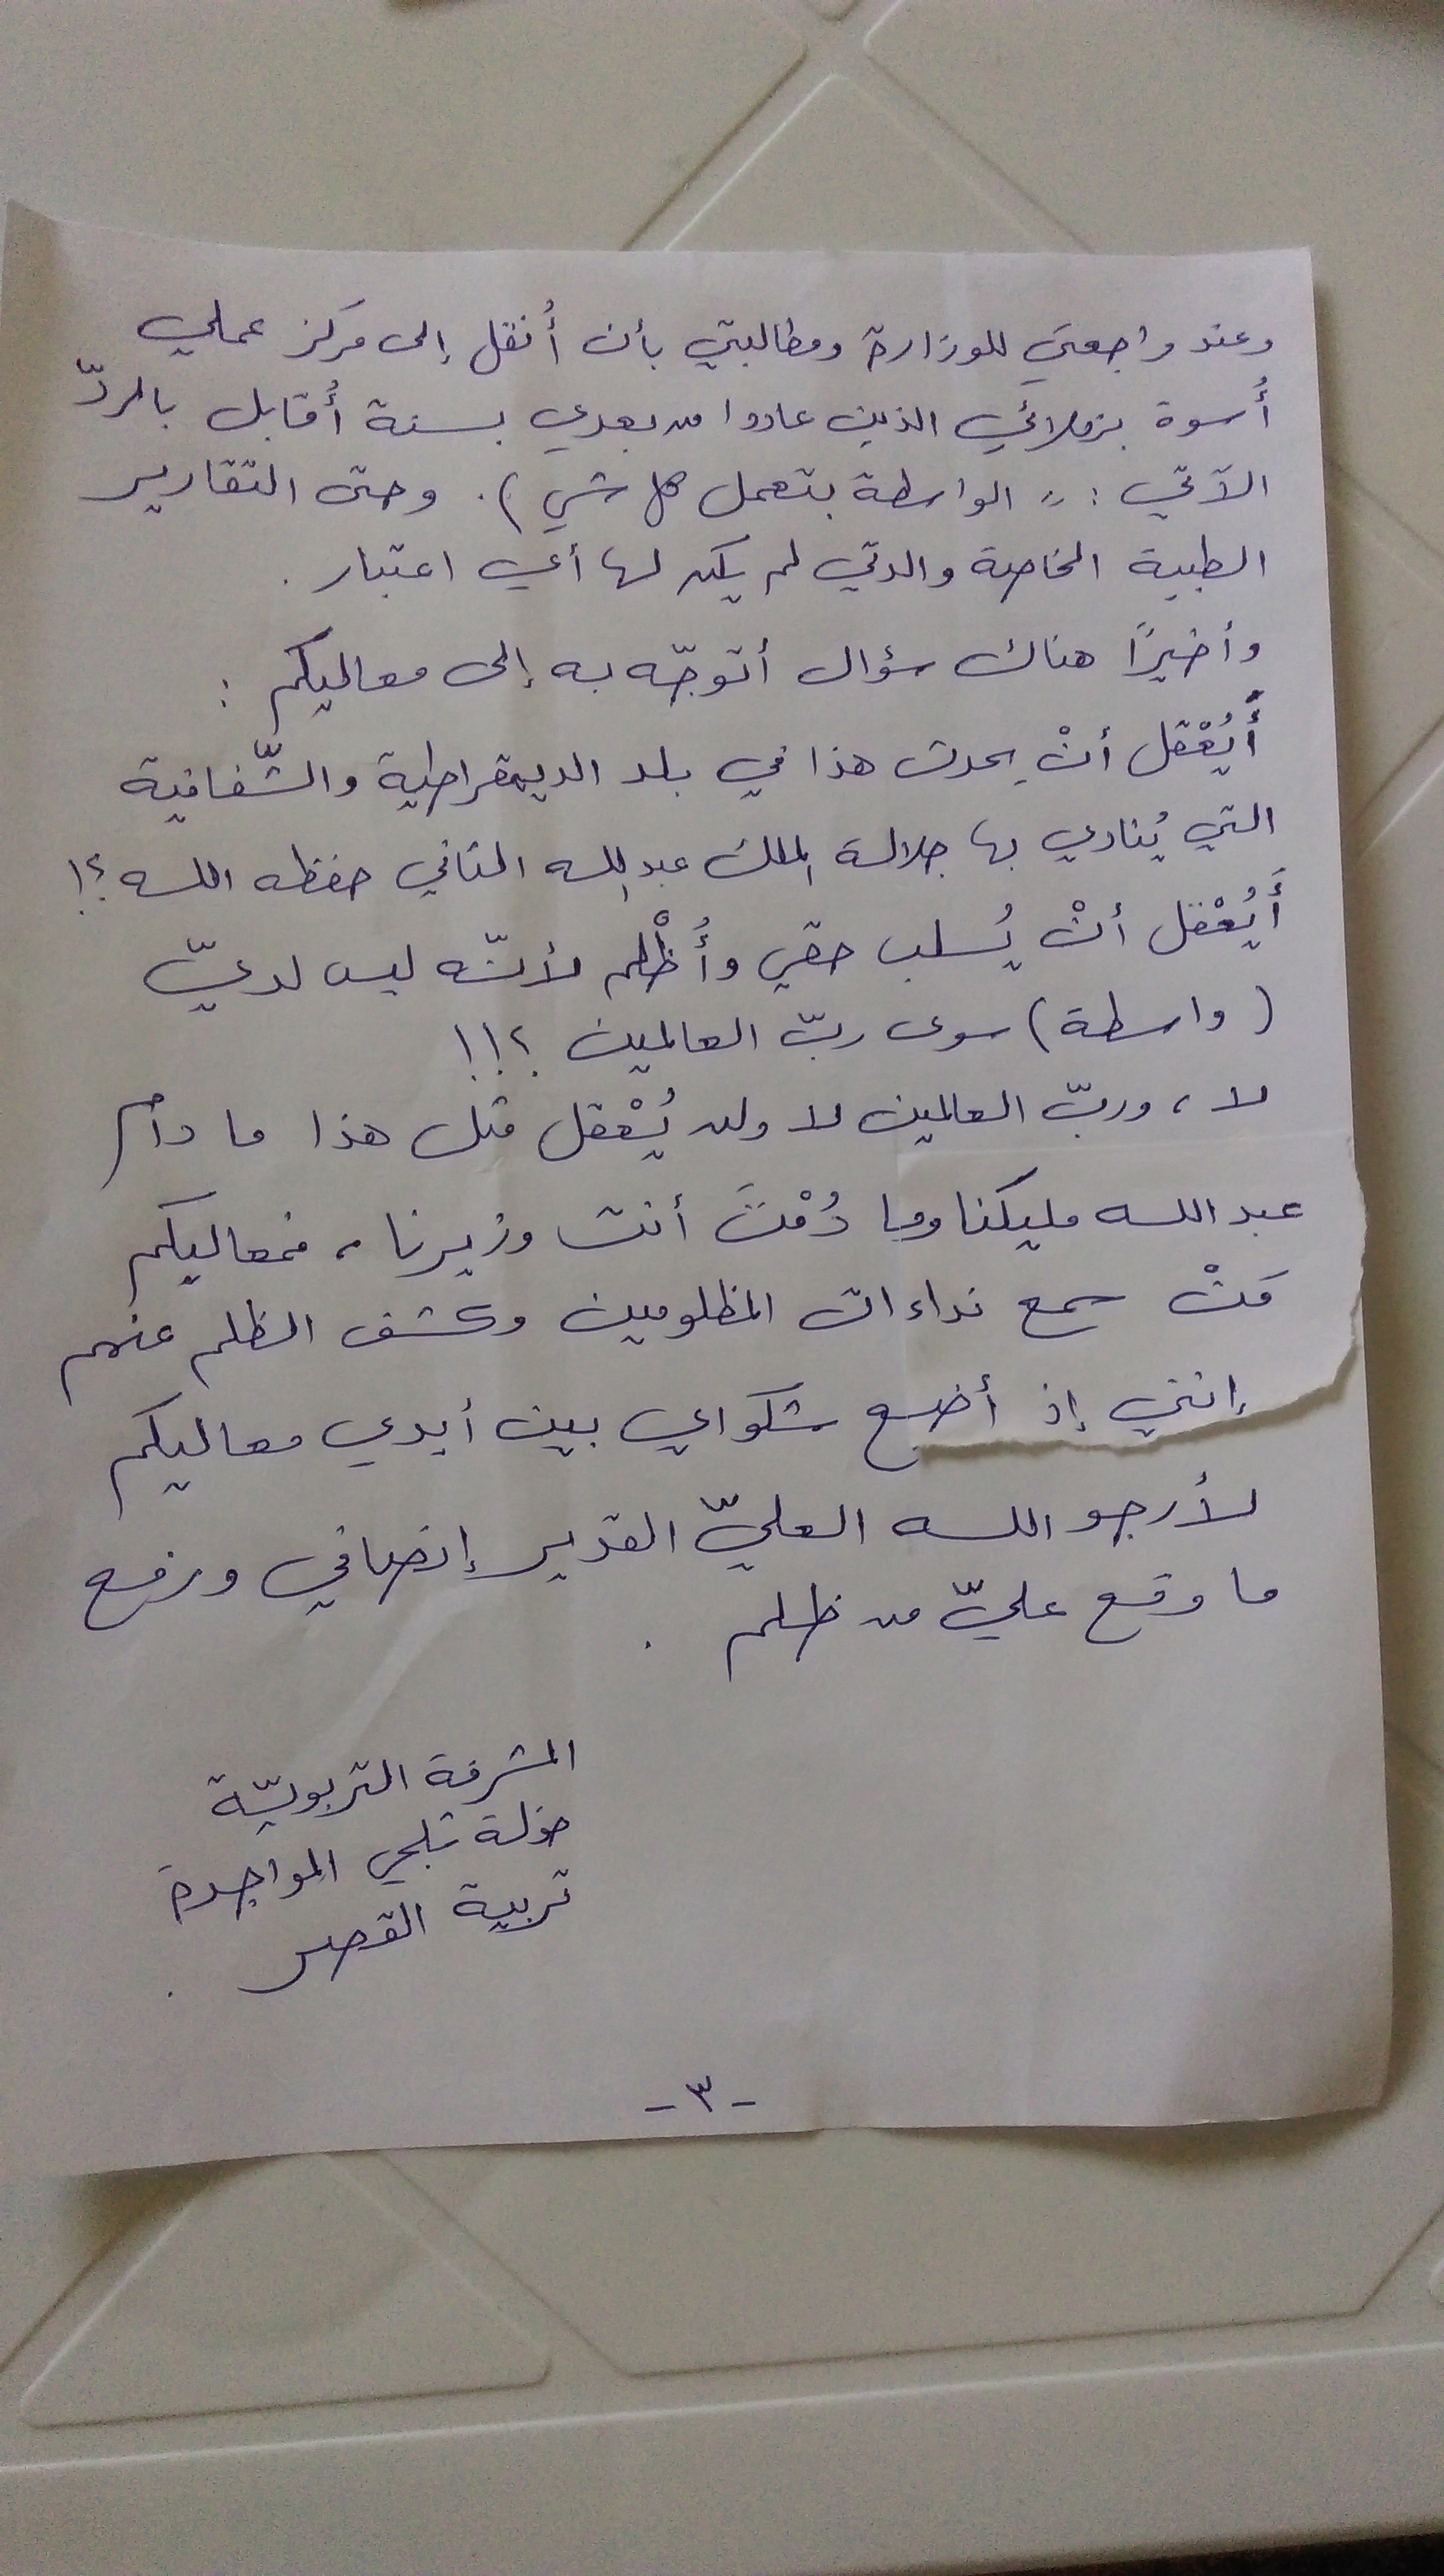 وعند مراجعتي للوزارة ومطالبتي بأن أُنقل إلى مركز عملي
أُسوة بزملائي الذين عادوا من بعدي بسنة أُقابل بالردّ
الآتي : " الواسطة بتعمل كل شي ). وحتى التقارير
الطبية الخاصة والدتي لم يكن لها أي اعتبار .
وأخيرًا هناك سؤال أتوجّه به إلى معاليكم :
أَيُعْقل أنْ يحدث هذا في بلد الديمقراطية والشّفافية
التي يُنادي بها جلالة الملك عبدالله الثاني حفظه الله ؟!
أَيُعْقل أنْ يُسلب حقي وأُظْلم لأنّه ليس لديّ
( واسطة ) سوى ربّ العالمين ؟!!
لا ، وربّ العالمين لا ولن يُعْقل مثل هذا ما دام
عبد الله مليكنا وما دُمْتَ أنت وزيرنا ، فمعاليكم
مَنْ سمع نداءات المظلومين وكشف الظلم عنهم
إنني إذ أضع شكواي بين أيدي معاليكم
لأرجو الله العليّ القدير إنصافي ورفع
ما وقع عليّ من ظلم .
المشرفة التربويّة
خولة ثلجي المواجدة
تربية القصر .
- ٣ -